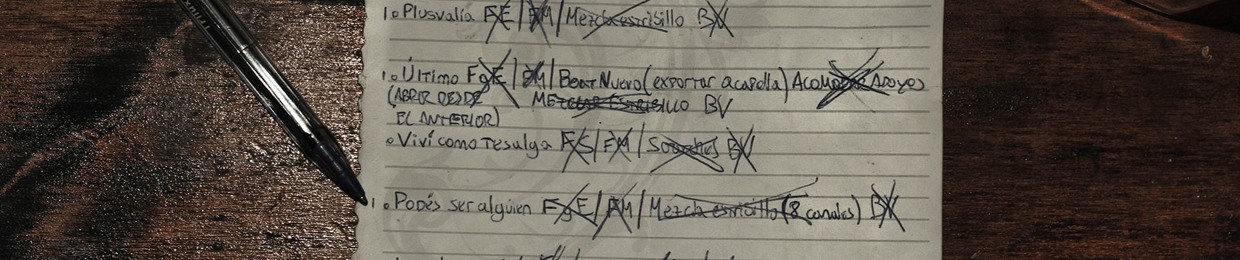 1. Plusvalía FE / EM / Mezcla estribillo BV
1. Último FgE / EM / Beat Nuevo (exportar acapella) Acomodar Apoyos
(ABRIR DESDE MEZCLAR ESTRIBILLO BV
EL ANTERIOR)
Viví como resulga FS / EM / BV
1. Podés ser alguien FgE / EM / Mezcla estribillo (8 canales) BV